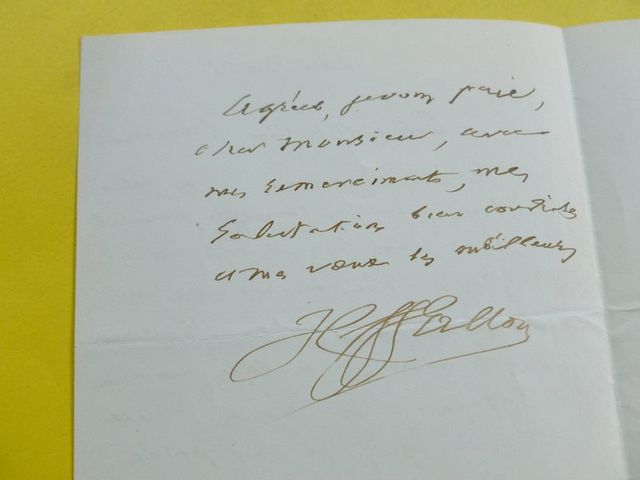 Agréez, je vous prie,
cher Monsieur, avec
mes remerciments, mes
salutations bien cordiales
et mes vœux les meilleurs